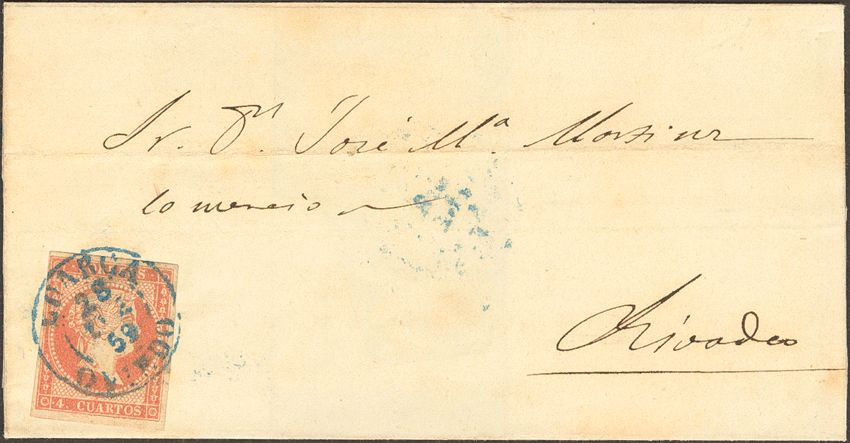 Sr. Dn José Mª Martinez
Comercio
Rivadeo
LUARCA
28
59
OVIEDO
4. CUARTOS